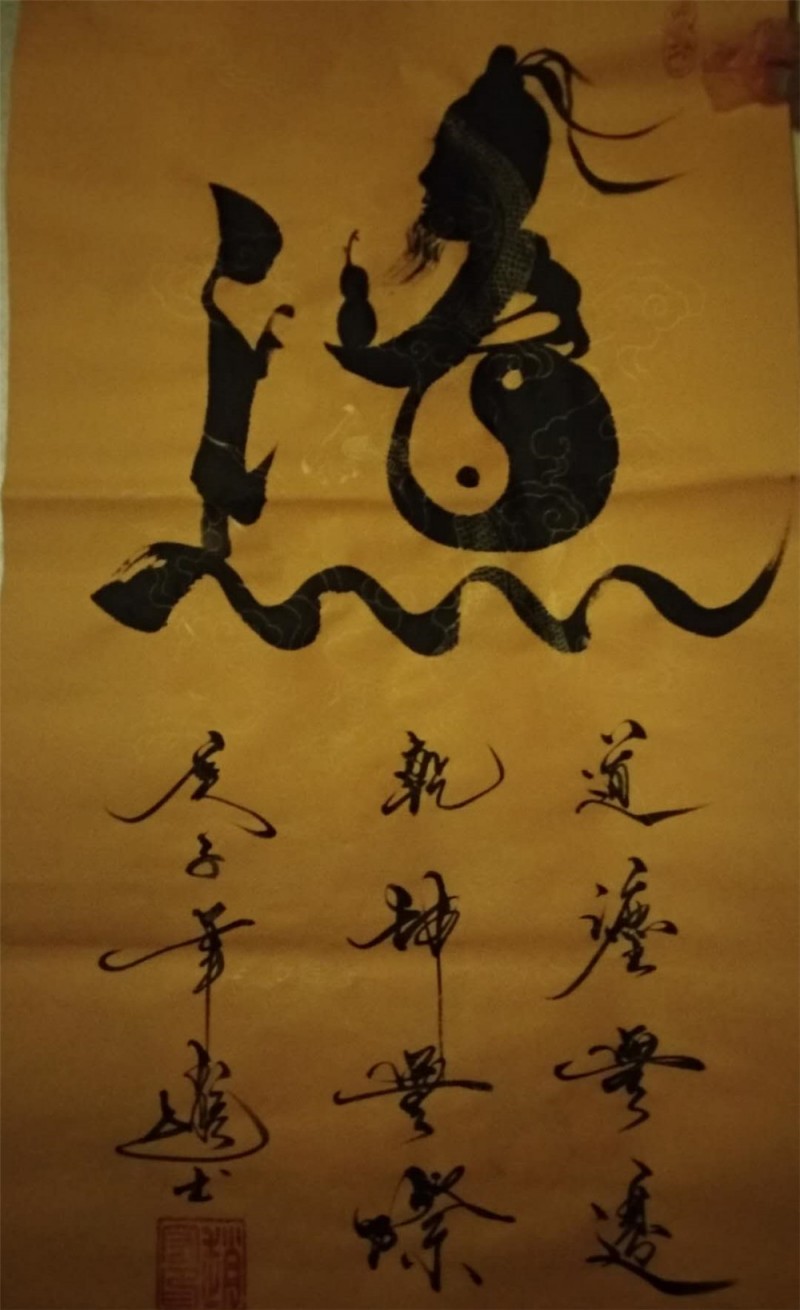 道灋無邊
乾坤無際
庚子年士